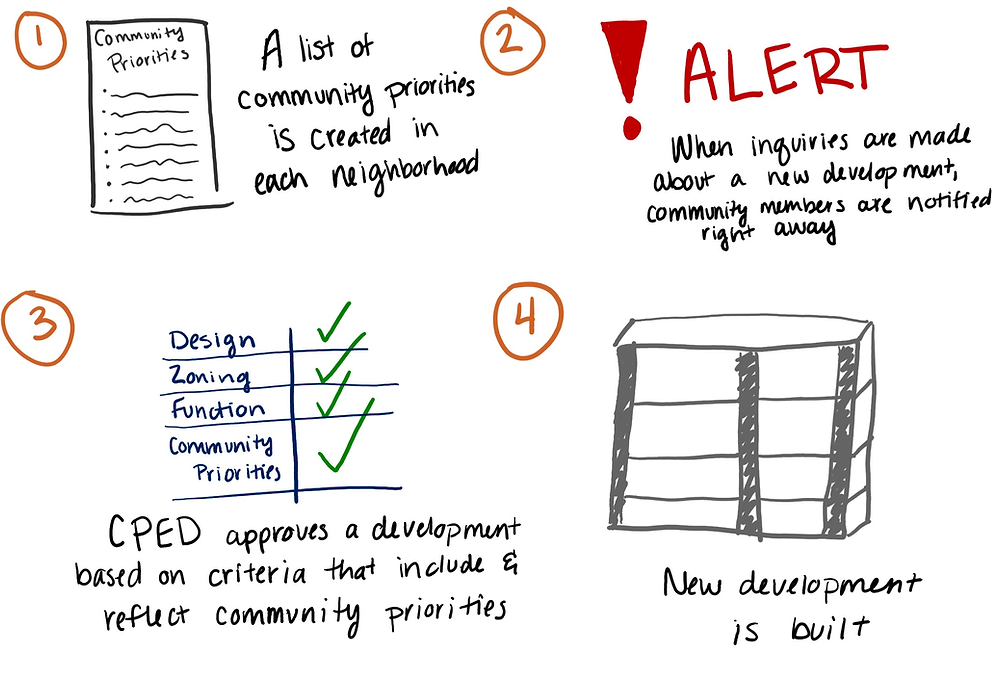 1
Community
Priorities
A list of
community priorities
is created in
each neighborhood
2
! ALERT
When inquiries are made
about a new development,
community members are notified
right away
3
Design
Zoning
Function
Community
Priorities
CPED approves a development
based on criteria that include &
reflect community priorities
4
New development
is built